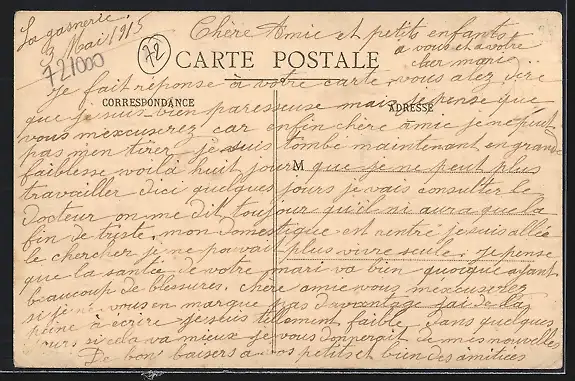 La gasnerie
3 Mai 1915
Chère Amie et petits enfants
à vous et à votre
cher mari
72
721000
CARTE POSTALE
je fait réponse à votre carte, vous alez dire
CORRESPONDANCE
ADRESSE
que je suis bien paresseuse mais je pense que
vous m'excuserez car enfin chère amie je ne peut
pas m'en tirer je suis tombé maintenant en grande
faiblesse voilà huit jours que je ne peut plus
M
travailler d'ici quelques jours je vais consulter le
docteur on me dit toujour qu'il ni aura que la
fin de triste. mon domestique est rentré je suis allée
le chercher je ne pouvait plus vivre seule. je pense
que la santé de votre mari va bien quoique ayant
beaucoup de blessures. chère amie vous m'excuserez
si je ne vous en marque pas davantage jai de la
peine à ecrire je suis tellement faible, dans quelques
jours si cela va mieux je vous donnerait de mes nouvelles
De bons baisers a vos petits et bien des amitiées